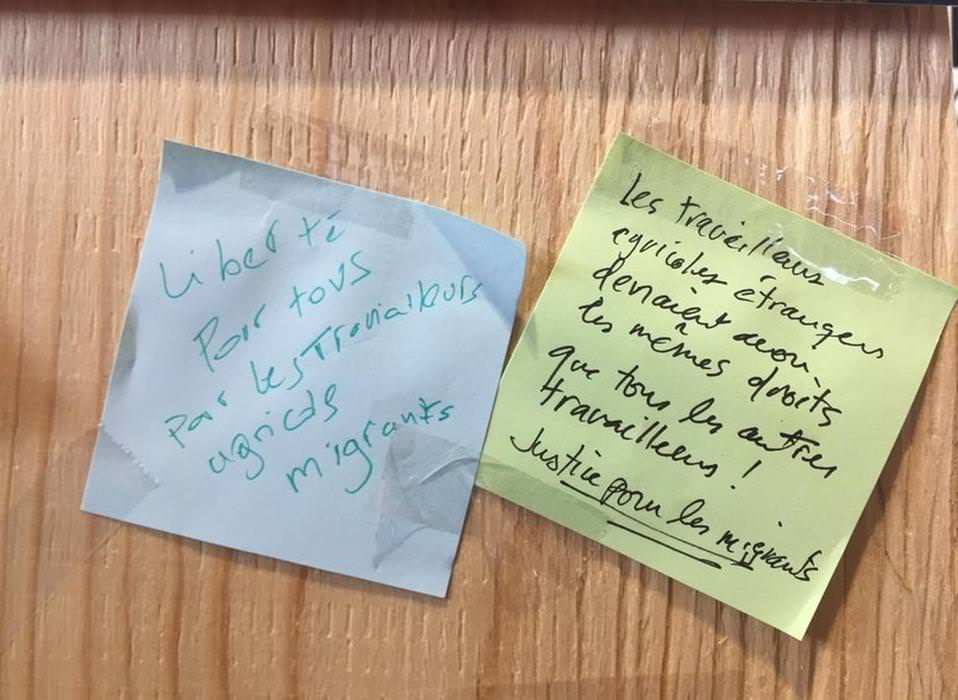 Liberté
Pour tous
par les Travailleurs
agricols
migrants
Les travailleurs
agricoles étrangers
devraient avoir
les mêmes droits
que tous les autres
travailleurs !
Justice pour les migrants